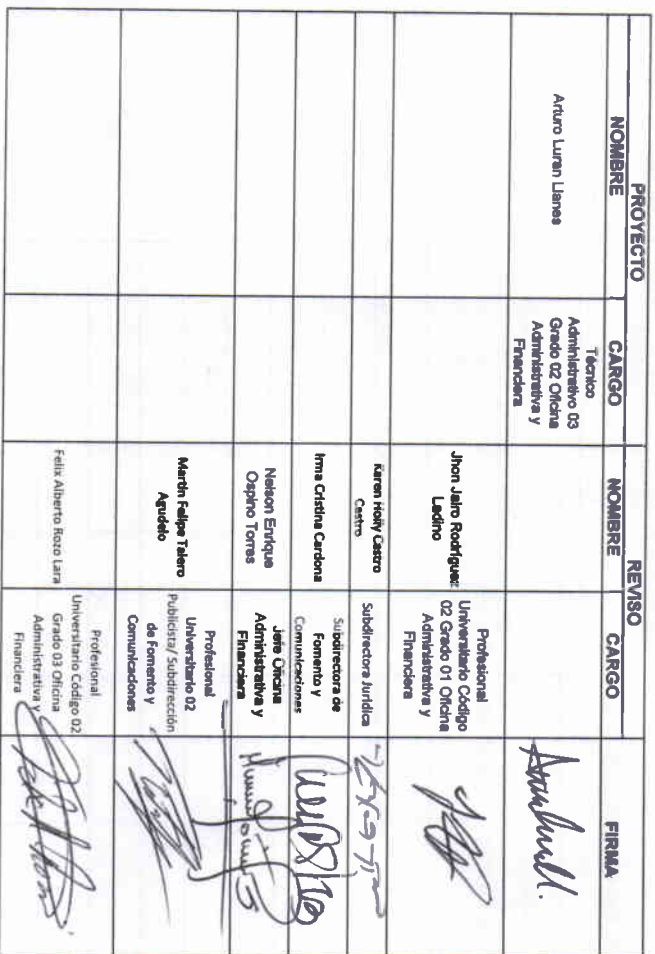 PROYECTO
REVISO
NOMBRE
CARGO
NOMBRE
CARGO
FIRMA
Arturo Luran Llanes
Técnico
Administrativo 03
Grado 02 Oficina
Administrativa y
Financiera
Jhon Jairo Rodríguez
Ladino
Profesional
Universitario Código
02 Grado 01 Oficina
Administrativa y
Financiera
Karen Holly Castro
Castro
Subdirectora Jurídica
Irma Cristina Cardona
Subdirectora de
Fomento y
Comunicaciones
Nelson Enrique
Ospino Torres
Jefe Oficina
Administrativa y
Financiera
Martin Felipe Talero
Agudelo
Profesional
Universitario 02
Publicista/ Subdirección
de Fomento y
Comunicaciones
Felix Alberto Rozo Lara
Profesional
Universitario Código 02
Grado 03 Oficina
Administrativa y
Financiera